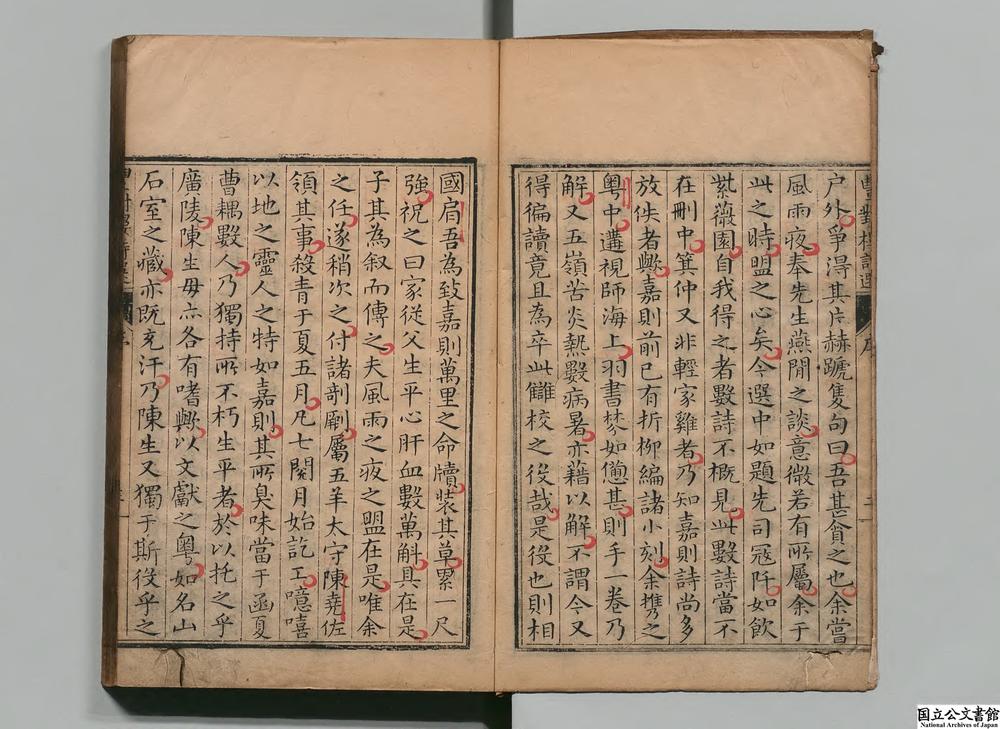 户外爭得其片赫蹏隻句曰吾甚貪之也余嘗
風雨夜奉先生燕閒之談意微若有所屬余于
此之時盟之心矣今選中如題先司寇阡如飲
紫薇園自我得之者數詩不概見此數詩當不
在刪中箕仲又非輕家雞者乃知嘉則詩尚多
放佚者歟嘉則前已有折柳編諸小刻余攜之
粵中遘視師海上羽書棼如憊甚則手一卷乃
解又五嶺苦炎熱數病暑亦藉以解不謂今又
得徧讀竟且為卒此讎校之役哉是役也則相
國肩吾為致嘉則萬里之命牘裝其草累一尺
強祝之曰家從父生平心肝血數萬斛具在是
子其為叙而傳之夫風雨之夜之盟在是唯余
之任遂稍次之付諸剞劂屬五羊太守陳堯佐
領其事殺青于夏五月凡七閱月始訖工噫嘻
以地之靈人之特如嘉則其所臭味當于函夏
曹耦數人乃獨持所不朽生平者於以托之乎
廣陵陳生毋亦各有嗜歟以文獻之粵如名山
石室之藏亦既充汗乃陳生又獨于斯役乎之
序
国立公文書館
National Archives of Japan